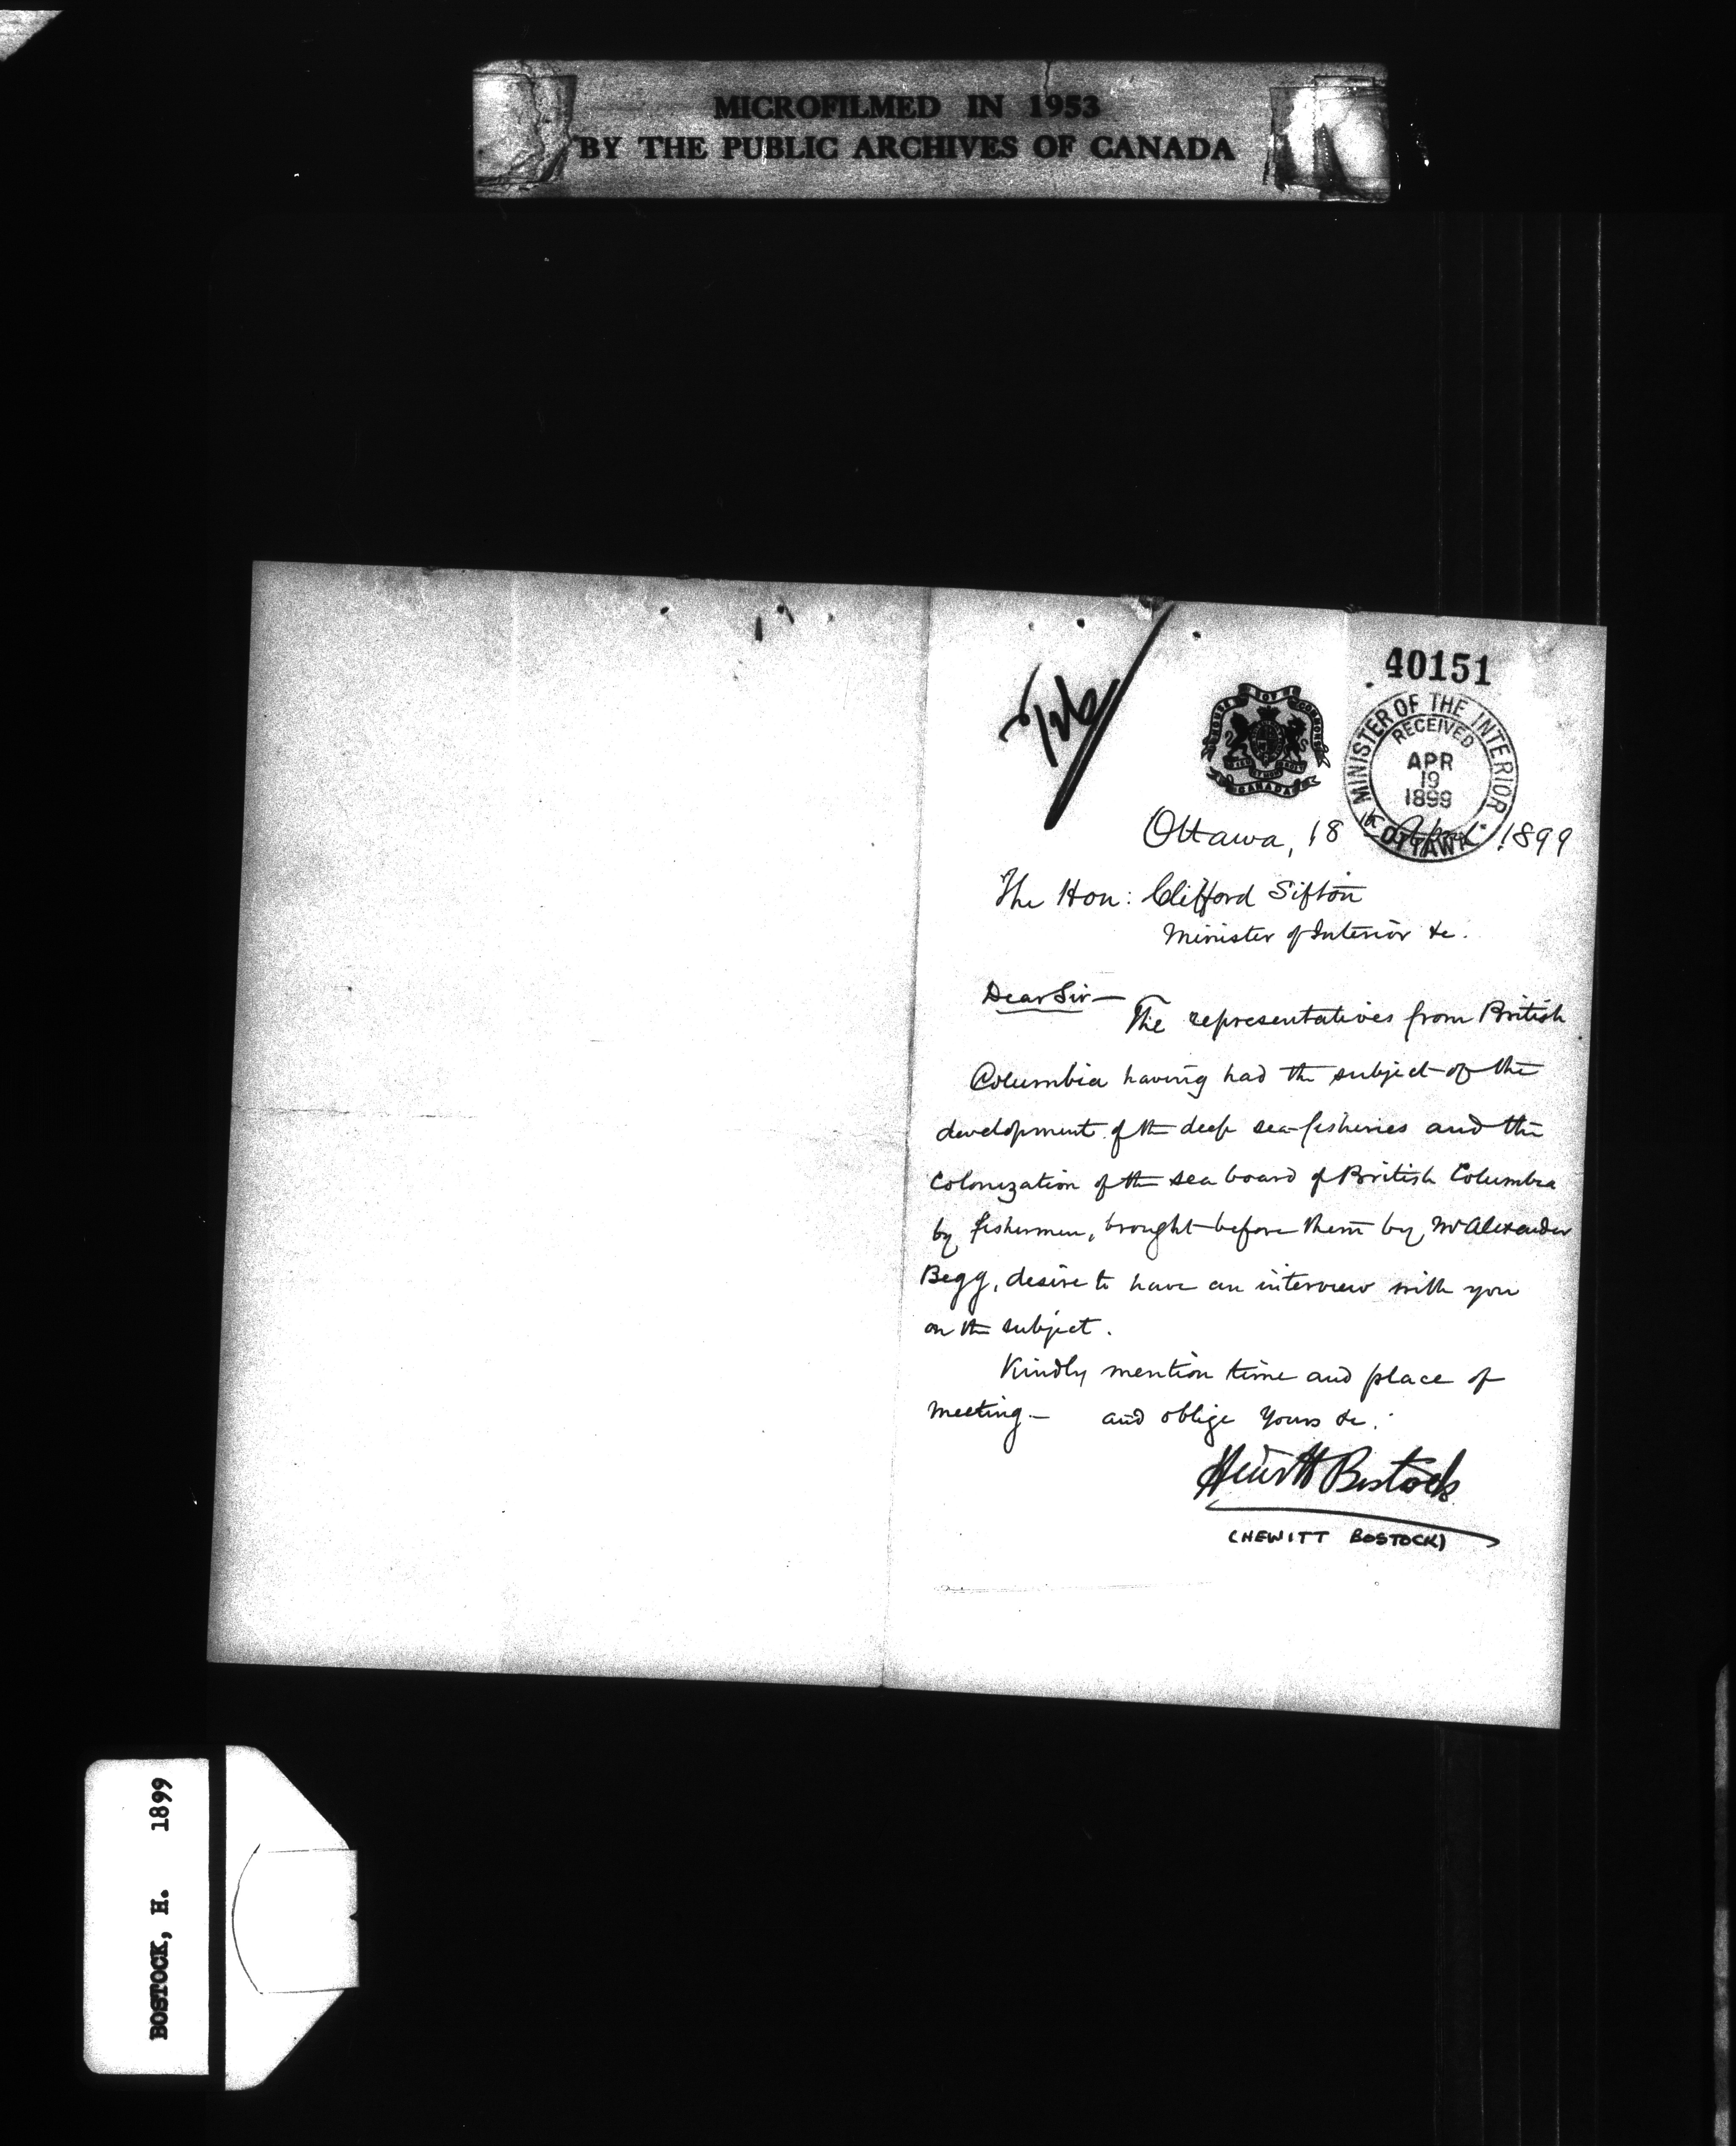 MICROFILMED IN 1953
BY THE PUBLIC ARCHIVES OF CANADA
40151
HOUSE OF COMMONS
CANADA
MINISTER OF THE INTERIOR
RECEIVED
APR
19
1899
OTTAWA
Ottawa, 18th April 1899
The Hon: Clifford Sifton
Minister of Interior &c.
Dear Sir —
The representatives from British
Columbia having had the subject of the
development of the deep sea fisheries and the
Colonization of the sea board of British Columbia
by fishermen, brought before them by Mr Alexander
Begg, desire to have an interview with you
on the subject.
Kindly mention time and place of
meeting — and oblige Yours &c.
Hewitt Bostock
(HEWITT BOSTOCK)
BOSTOCK, H. 1899